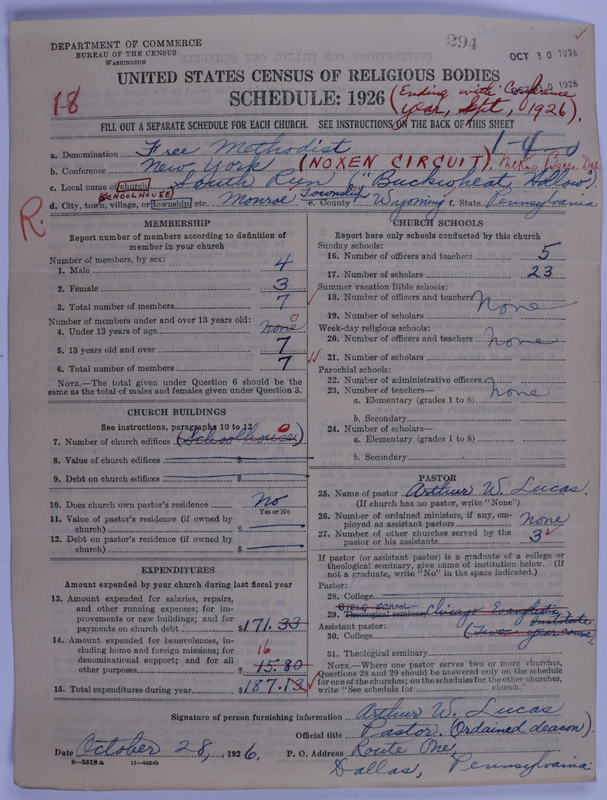 DEPARTMENT OF COMMERCE
BUREAU OF THE CENSUS
WASHINGTON
294
OCT 30 1926
UNITED STATES CENSUS OF RELIGIOUS BODIES
SCHEDULE: 1926 (Ending with Conference
year, Sept, 1926).
1-8
FILL OUT A SEPARATE SCHEDULE FOR EACH CHURCH. SEE INSTRUCTIONS ON THE BACK OF THIS SHEET
1-4-0
a. Denomination Free Methodist
b. Conference New York (NOXEN CIRCUIT). Wilkes Barre Dist
c. Local name of church South Run ("Buckwheat Hollow")
SCHOOLHOUSE
d. City, town, village, or township etc. Monroe Township e. County Wyoming f. State Pennsylvania
R.
MEMBERSHIP
Report number of members according to definition of member in your church
Number of members, by sex:
1. Male 4
2. Female 3
3. Total number of members 7
Number of members under and over 13 years old:
4. Under 13 years of age none 0
5. 13 years old and over 7
6. Total number of members 7
NOTE.—The total given under Question 6 should be the same as the total of males and females given under Question 3.
CHURCH BUILDINGS
See instructions, paragraphs 10 to 12
7. Number of church edifices (Schoolhouse) 0
8. Value of church edifices $
9. Debt on church edifices $
10. Does church own pastor's residence No
Yes or No
11. Value of pastor's residence (if owned by church) $
12. Debt on pastor's residence (if owned by church) $
EXPENDITURES
Amount expended by your church during last fiscal year
13. Amount expended for salaries, repairs, and other running expenses; for improvements or new buildings; and for payments on church debt $171.33
14. Amount expended for benevolences, including home and foreign missions; for denominational support; and for all other purposes $ 15.80
16
15. Total expenditures during year $187.13
CHURCH SCHOOLS
Report here only schools conducted by this church
Sunday schools:
16. Number of officers and teachers 5
17. Number of scholars 23
Summer vacation Bible schools:
18. Number of officers and teachers None
19. Number of scholars
Week-day religious schools:
20. Number of officers and teachers None
21. Number of scholars
Parochial schools:
22. Number of administrative officers
23. Number of teachers— None
a. Elementary (grades 1 to 8)
b. Secondary
24. Number of scholars—
a. Elementary (grades 1 to 8)
b. Secondary
PASTOR
25. Name of pastor Arthur W. Lucas.
(If church has no pastor, write "None")
26. Number of ordained ministers, if any, employed as assistant pastors None
27. Number of other churches served by the pastor or his assistants 3
If pastor (or assistant pastor) is a graduate of a college or theological seminary, give name of institution below. (If not a graduate, write "No" in the space indicated.)
Pastor:
28. College
BIBLE SCHOOL
29. Theological seminary Chicago Evangelistic Institute
Assistant pastor:
30. College (Two-year course).
31. Theological seminary
NOTE.—Where one pastor serves two or more churches, Questions 28 and 29 should be answered only on the schedule for one of the churches; on the schedules for the other churches, write "See schedule for church."
Signature of person furnishing information Arthur W. Lucas
Official title Pastor. (Ordained deacon).
Date October 28, 1926. P. O. Address Route One,
Dallas, Pennsylvania
8—5518a 11—9054b